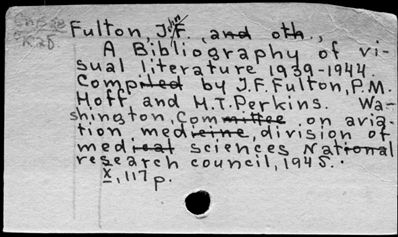 Fulton, John F., and oth.,
A Bibliography of vi-
sual literature 1939-1944.
Compiled by J.F. Fulton, P.M.
Hoff and H.T. Perkins. Wa-
shington, Committee on avia-
tion medicine, division of
medical sciences National
research council, 1945.
X, 117 p.